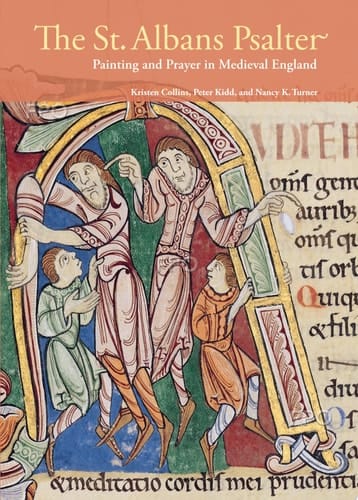 The St. Albans Psalter
Painting and Prayer in Medieval England
Kristen Collins, Peter Kidd, and Nancy K. Turner
UDITE H
om̄s gen
aurib
om̄s q
tis orb
Quiq
&fili
sa
&meditatio cordis mei prudenti